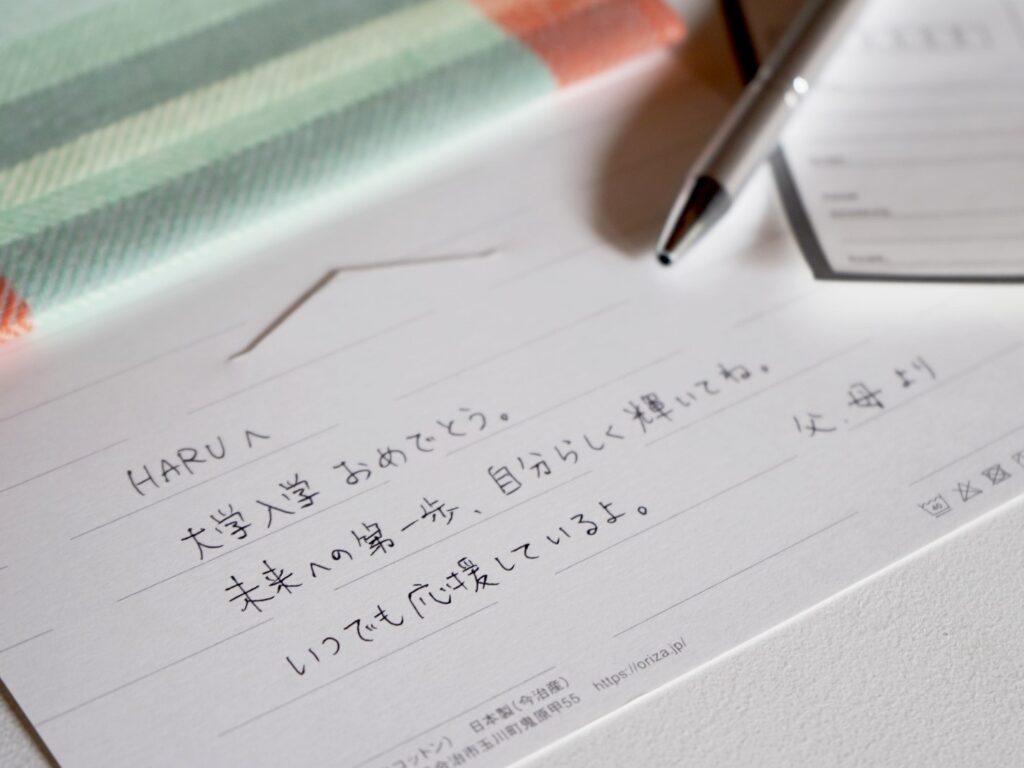 HARUへ
大学入学 おめでとう。
未来への第一歩、自分らしく輝いてね。
いつでも応援しているよ。
父.母より
コットン) 日本製(今治産)
今治市玉川町鬼原甲55 https://oriza.jp/
40